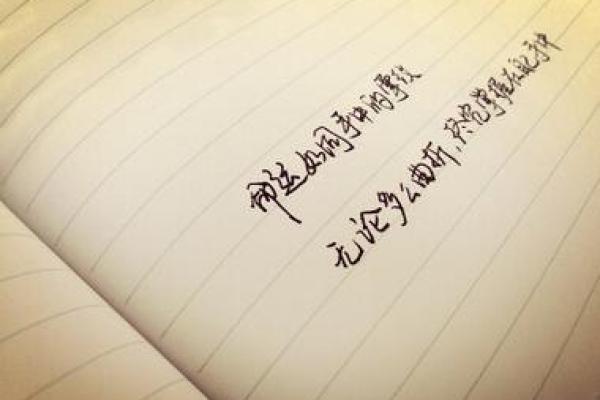 命运如同手中的掌纹
无论多么曲折，终究掌握在自己手中